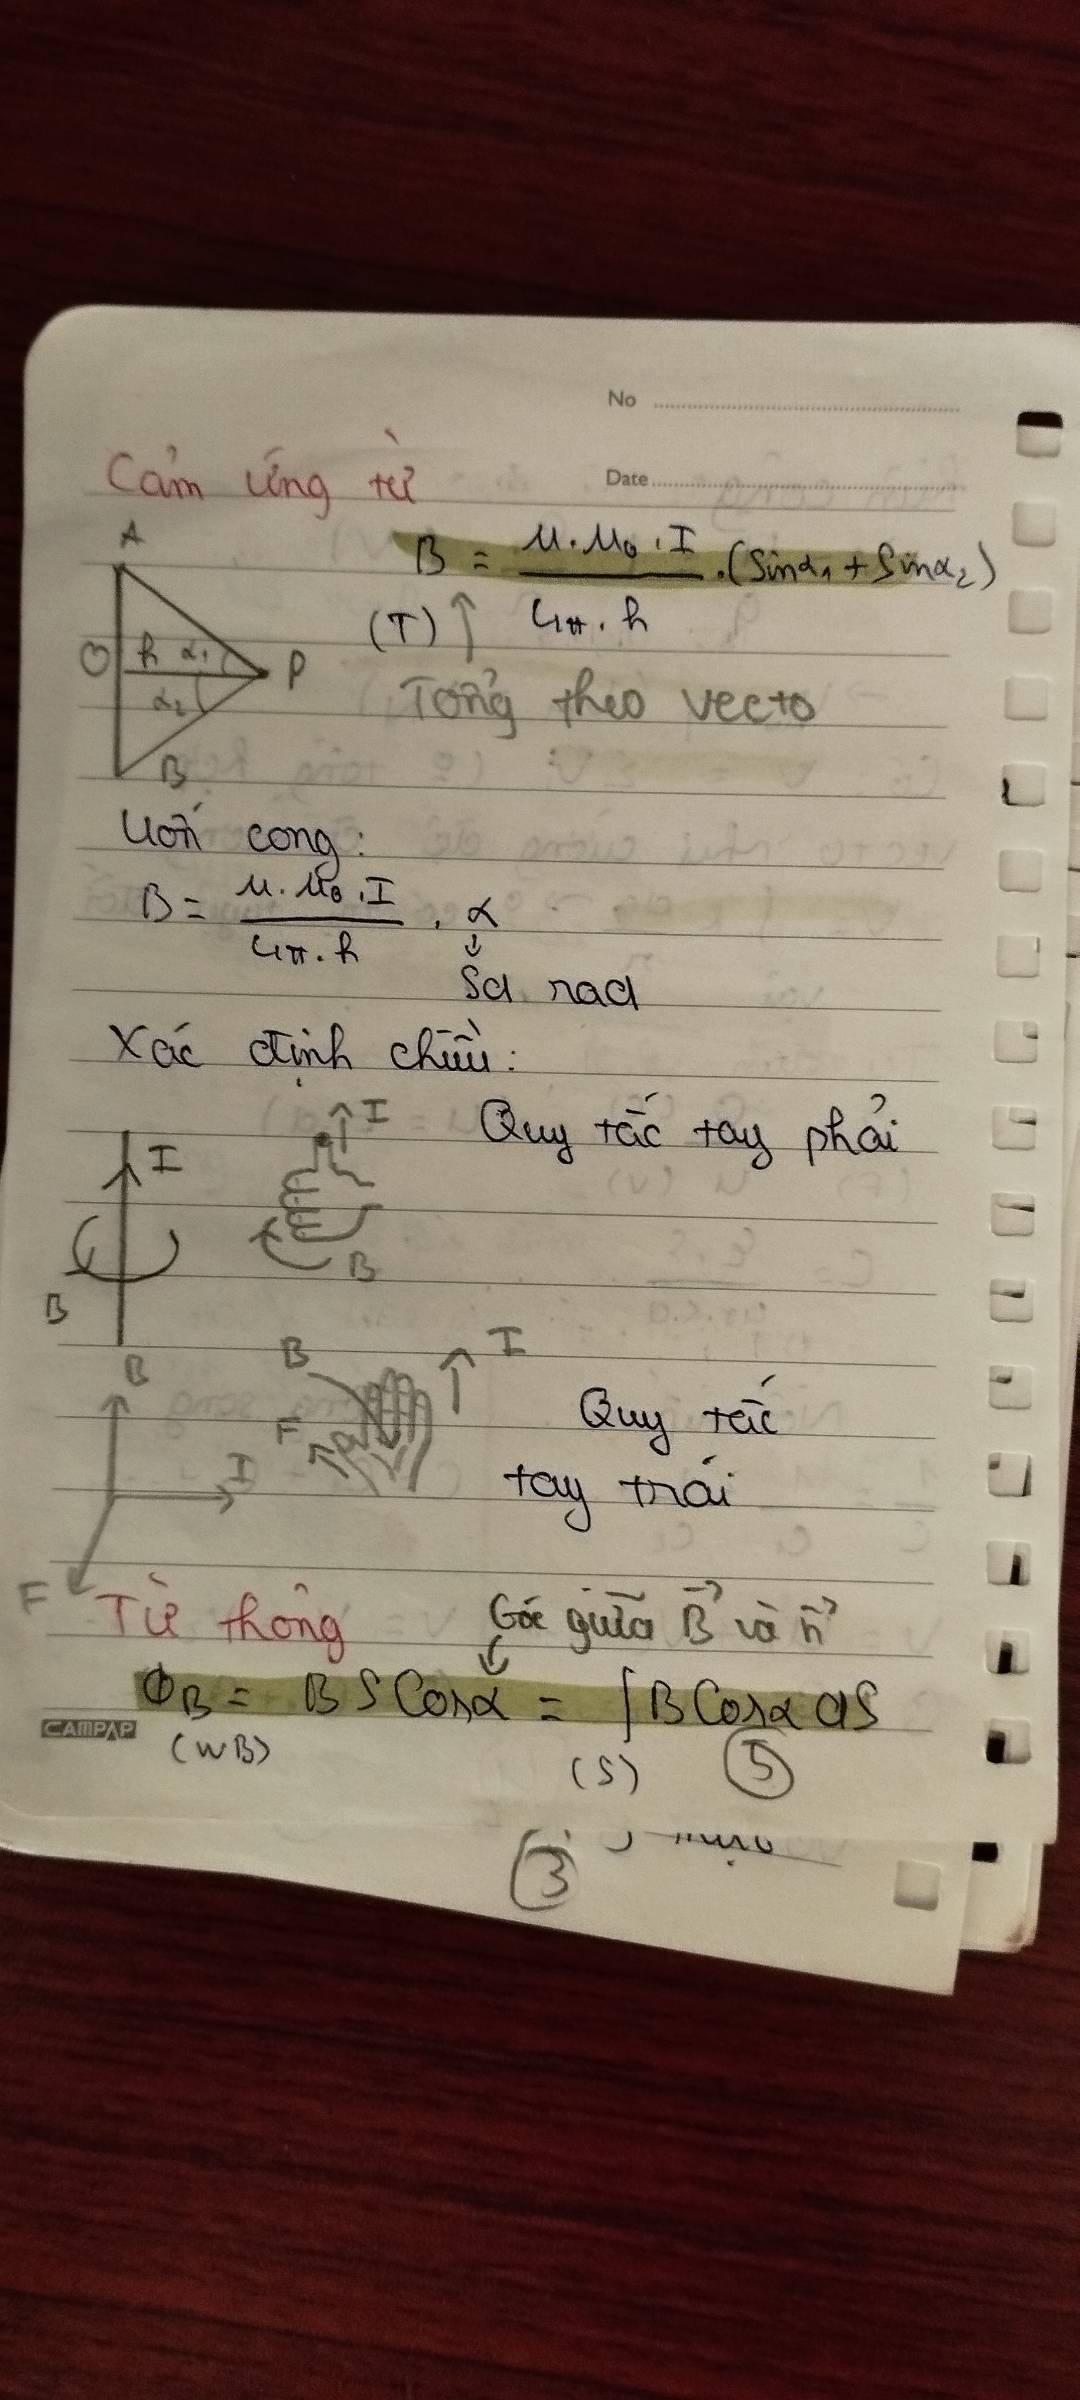 No
Date
Cảm ứng từ
A
B = μ.μ₀.I / 4π.h .(Sinα₁ + Sinα₂)
(T)
O h α₁ P
α₂
Tổng theo vecto
B
Uốn cong:
B = μ.μ₀.I / 4π.h . α
Số rad
Xác định chiều:
I
I
Quy tắc tay phải
B
B
B
I
B
F
I
Quy tắc
tay trái
F
Từ thông
Góc giữa B⃗ và n⃗
Φ_B = BSCosα = ∫BCosα dS
CAMPAP
(WB)
(S)
5
3